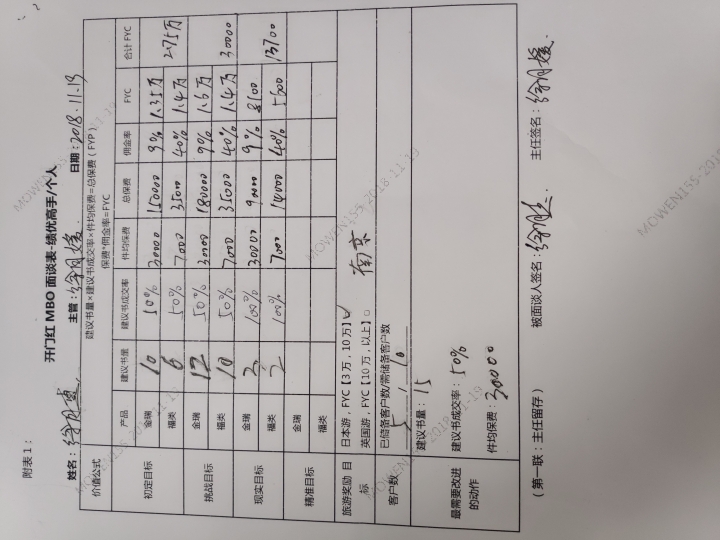 附表1：
开门红 MBO 面谈表-绩优高手/个人
姓名： 主管： 日期：2018.11.19
价值公式 建议书量×建议书成交率×件均保费=总保费（FYP）
保费*佣金率=FYC
产品 建议书量 建议书成交率 件均保费 总保费 佣金率 FYC 合计 FYC
初定目标 金瑞 10 50% 30000 150000 9% 1.35万 2.75万
福类 6 50% 7000 35000 40% 1.4万
挑战目标 金瑞 12 50% 30000 180000 9% 1.6万 30000
福类 10 50% 7000 35000 40% 1.4万
现实目标 金瑞 3 100% 30000 90000 9% 8100 13700
福类 2 100% 7000 14000 40% 5600
精准目标 金瑞
福类
旅游奖励 目标 日本游，FYC【3万，10万】☑ 南京
英国游，FYC【10万，以上】□
客户数 已储备客户数/需储备客户数
5 / 10
最需要改进的动作 建议书量：15
建议书成交率：50%
件均保费：30000
（第一联：主任留存） 被面谈人签名： 主任签名：
MOWEN155-2018-11-19